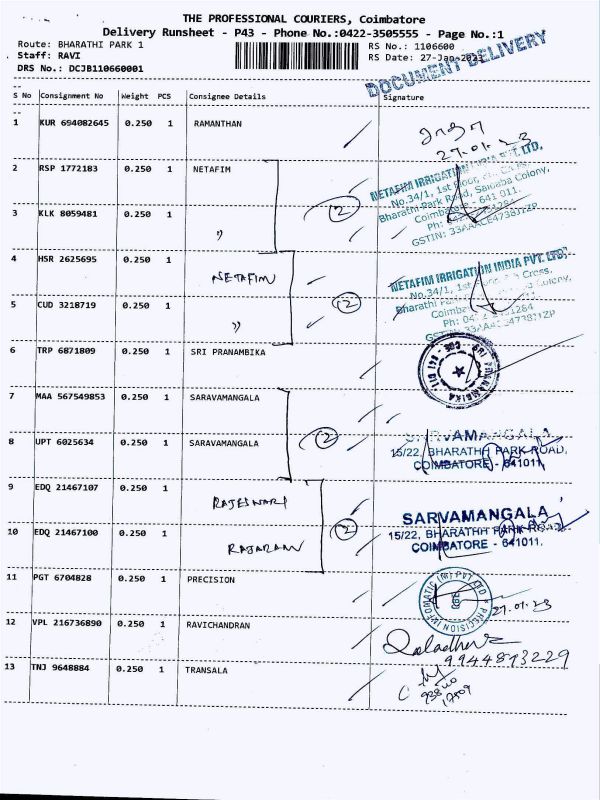 THE PROFESSIONAL COURIERS, Coimbatore
Delivery Runsheet - P43 - Phone No.:0422-3505555 - Page No.:1
Route: BHARATHI PARK 1 RS No.: 1106600
Staff: RAVI RS Date: 27-Jan-2023
DRS No.: DCJB110660001
DOCUMENT DELIVERY
S No Consignment No Weight PCS Consignee Details Signature
1 KUR 694082645 0.250 1 RAMANTHAN
27.01.23
2 RSP 1772183 0.250 1 NETAFIM
NETAFIM IRRIGATION INDIA PVT. LTD,
No.34/1, 1st Floor,
Bharathi Park Road, Saibaba Colony,
Coimbatore - 641 011.
Ph:
GSTIN: 33AAACE4738J1ZP
2
3 KLK 8059481 0.250 1 "
4 HSR 2625695 0.250 1 NETAFIM
NETAFIM IRRIGATION INDIA PVT. LTD,
No.34/1, 1st Cross,
Bharathi Colony,
Ph:
2
5 CUD 3218719 0.250 1 "
6 TRP 6871809 0.250 1 SRI PRANAMBIKA
SRI PRANAMBIKA
7 MAA 567549853 0.250 1 SARAVAMANGALA
2
8 UPT 6025634 0.250 1 SARAVAMANGALA
SARVAMANGALA
15/22, BHARATHI PARK ROAD,
COIMBATORE - 641011.
9 EDQ 21467107 0.250 1 RAJESWARI
SARVAMANGALA
15/22, BHARATHI PARK ROAD,
COIMBATORE - 641011.
2
10 EDQ 21467100 0.250 1 RAJARAM
11 PGT 6704828 0.250 1 PRECISION
PRECISION INFOMATIC (M) PVT LTD
CBE
27.01.23
12 VPL 216736890 0.250 1 RAVICHANDRAN
9944873229
13 TNJ 9648884 0.250 1 TRANSALA